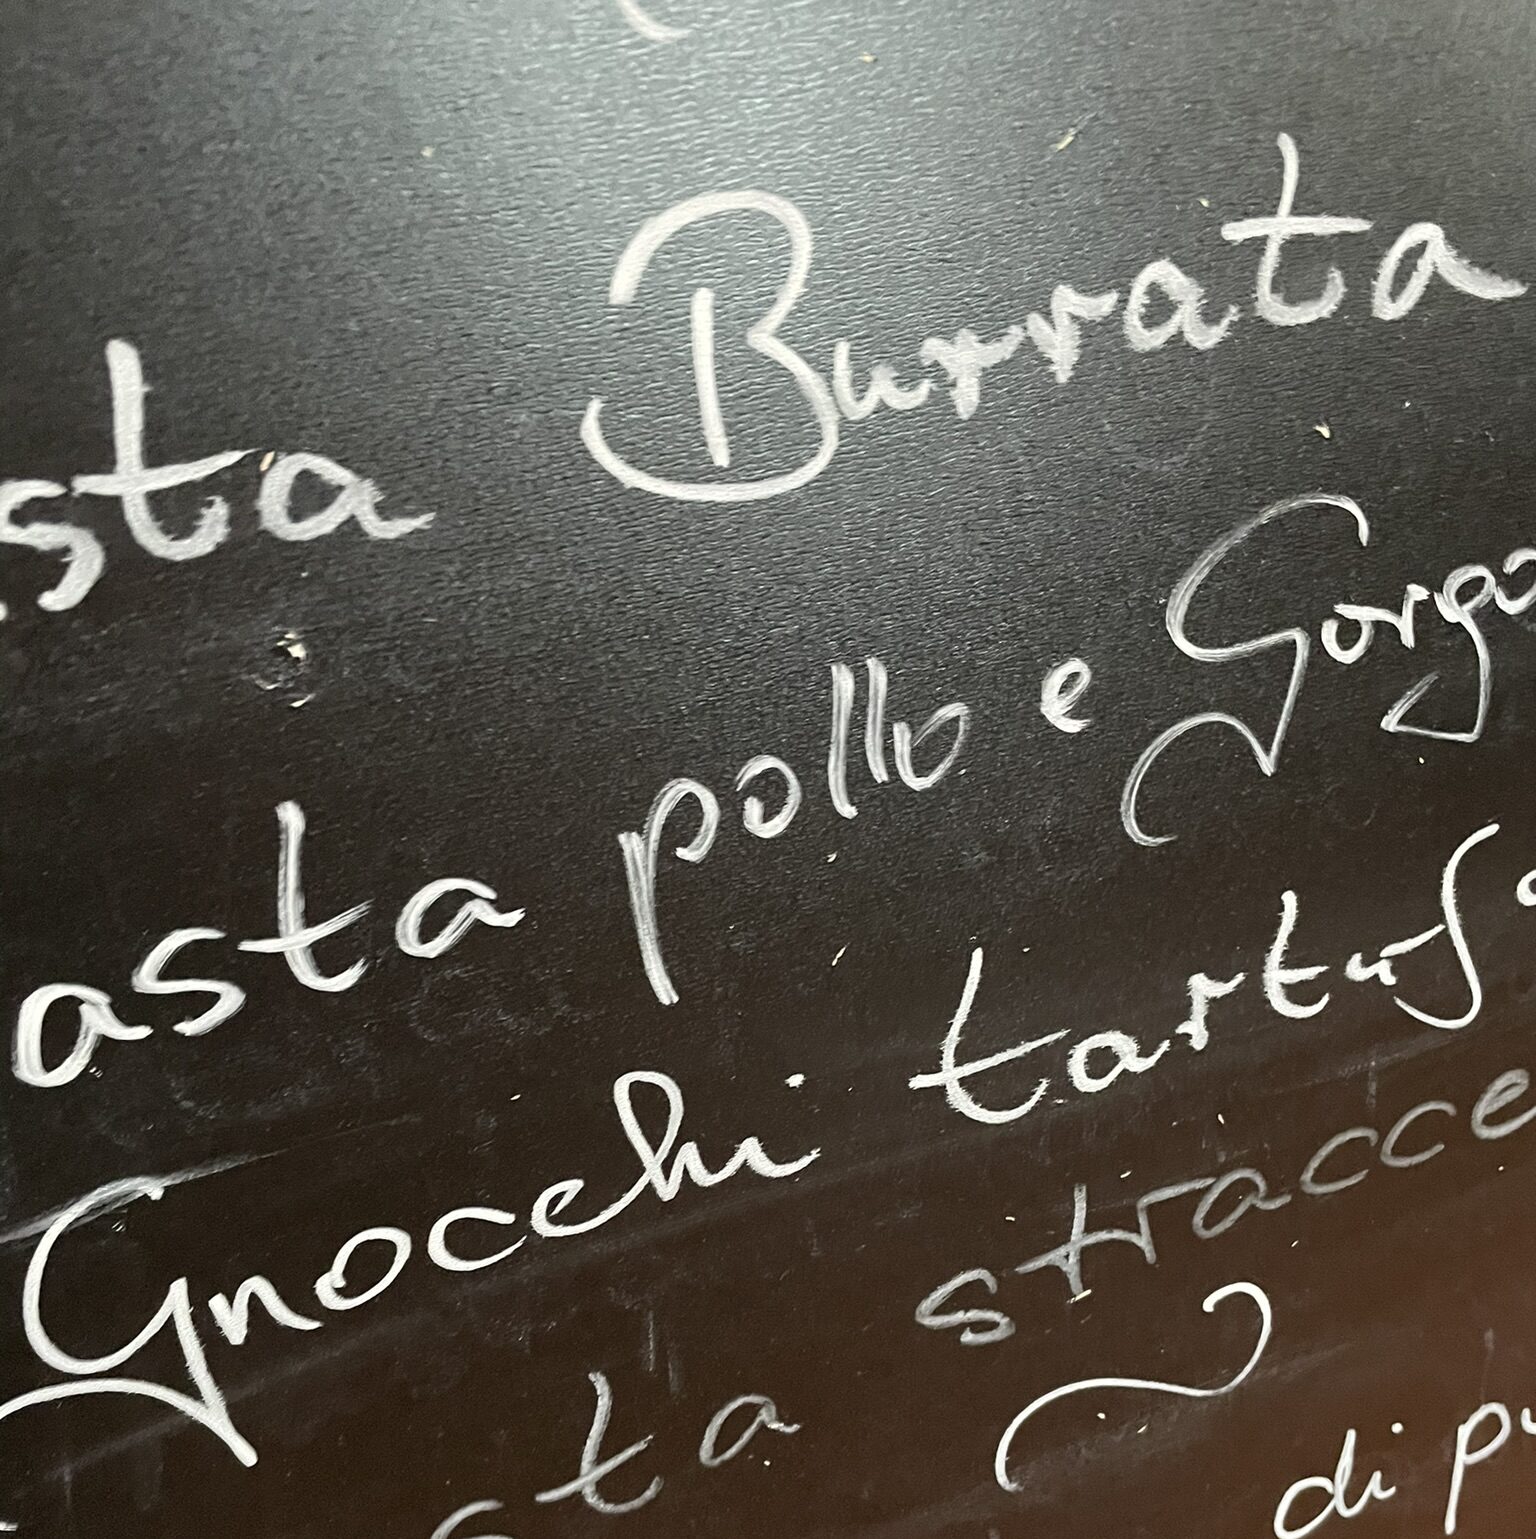 sta Burrata
asta pollo e Gorgo
Gnocchi tartufo
sta stracce
di pu